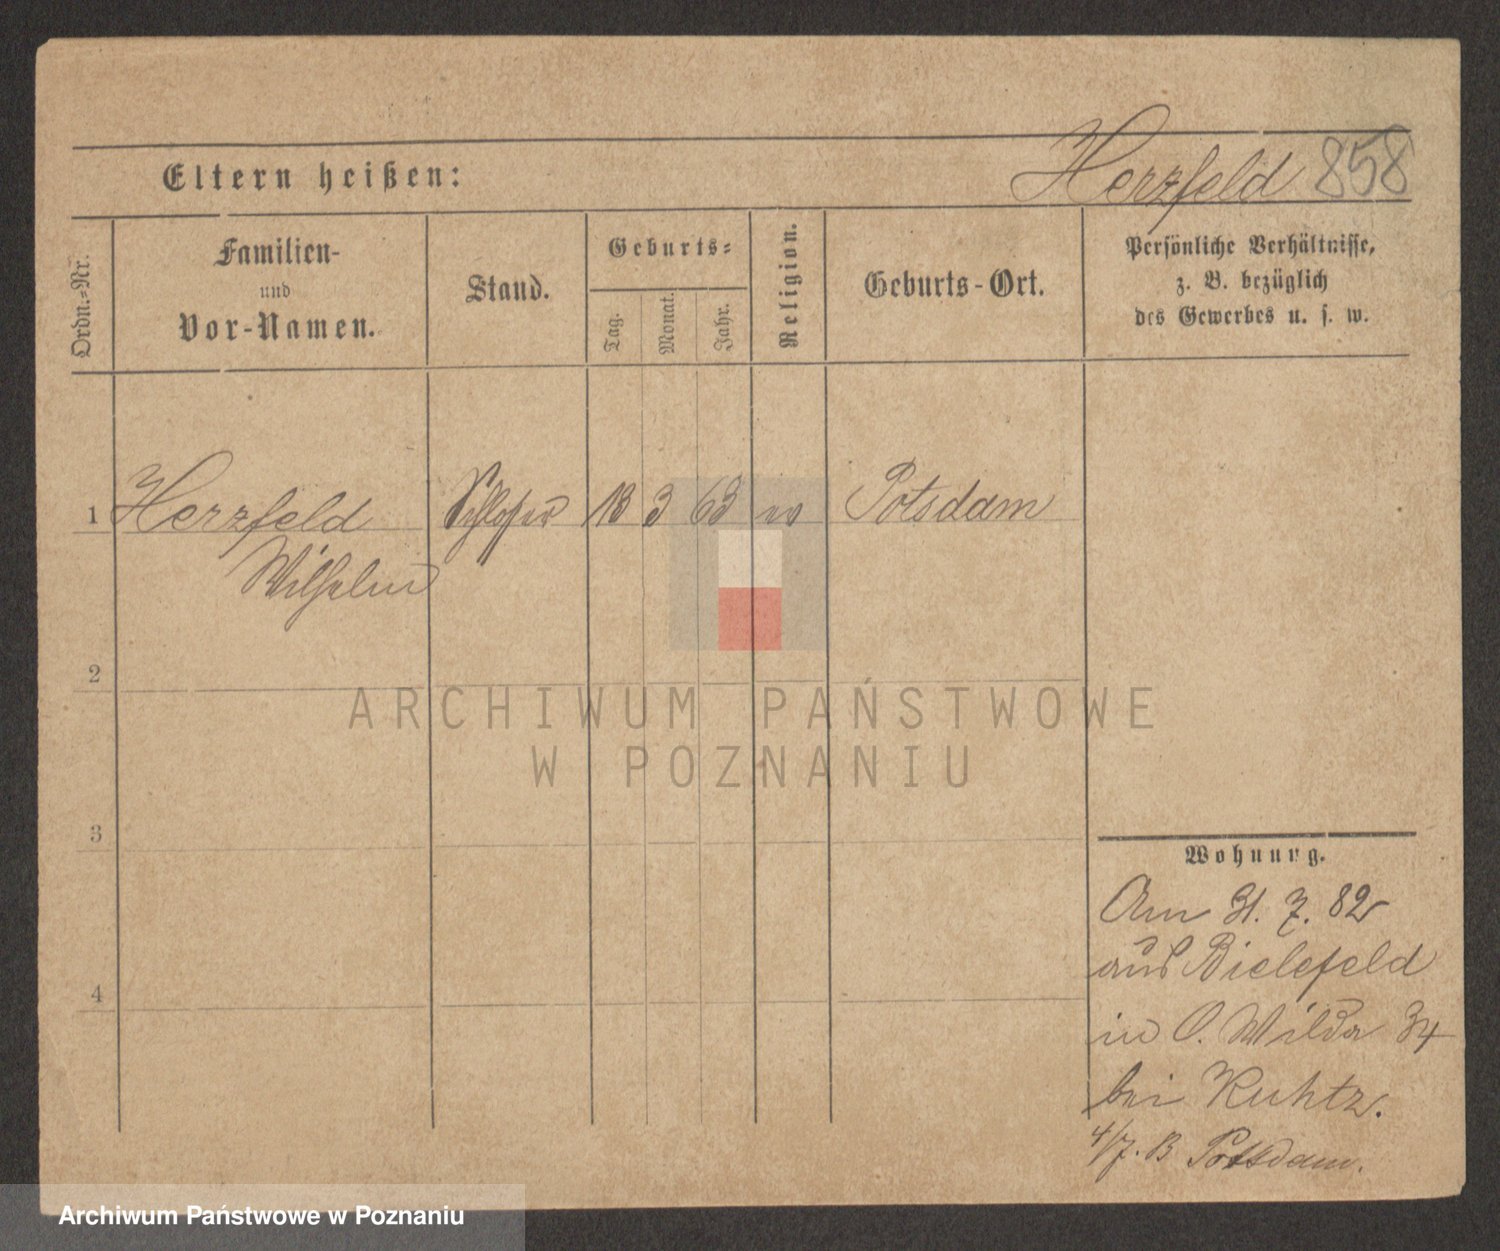 Eltern heißen: Herzfeld 858
Ordn.-Nr.
Familien-
und
Vor-Namen.
Stand.
Geburts-
Tag.
Monat.
Jahr.
Religion.
Geburts-Ort.
Persönliche Verhältnisse,
z. B. bezüglich
des Gewerbes u. s. w.
1 Herzfeld Schlosser 18 3 63 ev Potsdam
Wilhelm
2
ARCHIWUM PAŃSTWOWE
W POZNANIU
3
Wohnung.
Am 31. 7. 82
aus Bielefeld
4
in O. Wilda 34
bei Kuhtz.
4/7. B Potsdam.
Archiwum Państwowe w Poznaniu